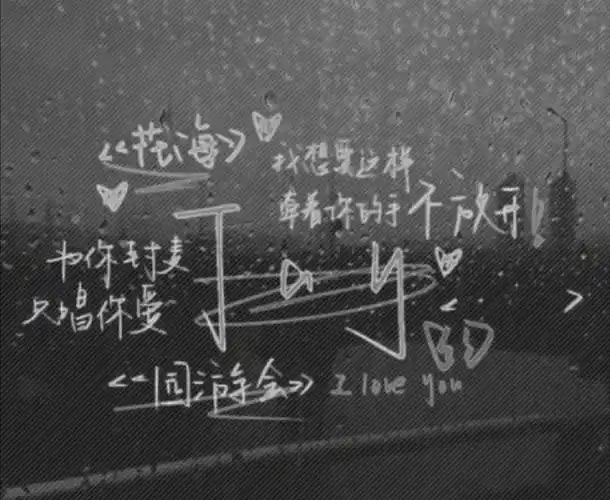 《花海》
我想要这样
牵着你的手不放开!
Jay
和你对麦
只唱你爱
< >
《园游会》
I love you